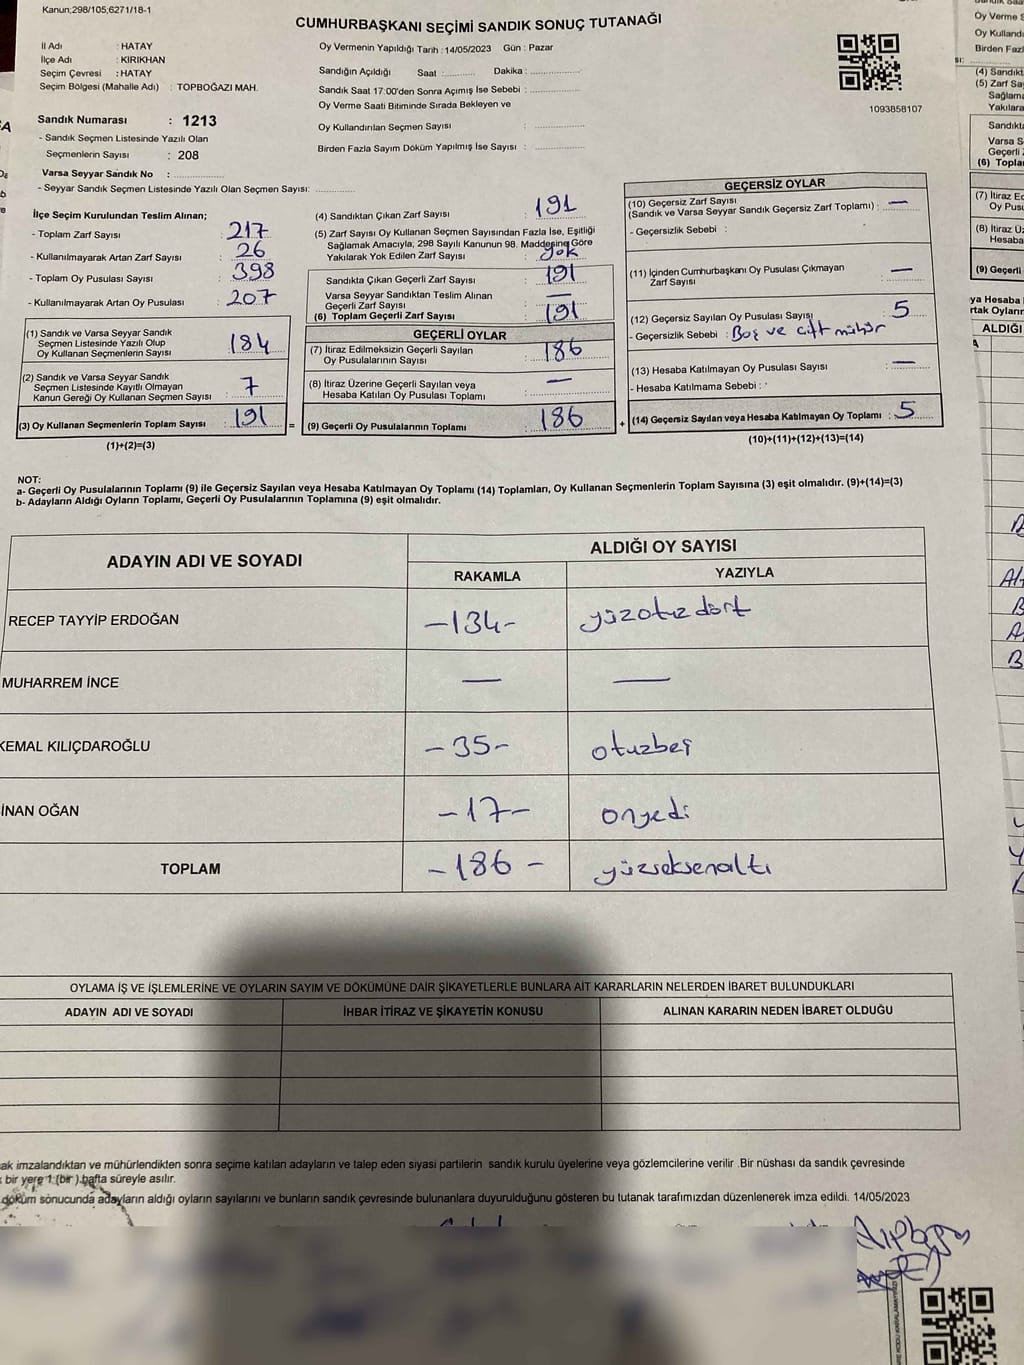 Kanun;298/105;6271/18-1
CUMHURBAŞKANI SEÇİMİ SANDIK SONUÇ TUTANAĞI
İl Adı : HATAY
İlçe Adı : KIRIKHAN
Seçim Çevresi : HATAY
Seçim Bölgesi (Mahalle Adı) : TOPBOĞAZI MAH.
Sandık Numarası : 1213
- Sandık Seçmen Listesinde Yazılı Olan
Seçmenlerin Sayısı : 208
Varsa Seyyar Sandık No :
- Seyyar Sandık Seçmen Listesinde Yazılı Olan Seçmen Sayısı:
Oy Vermenin Yapıldığı Tarih : 14/05/2023 Gün : Pazar
Sandığın Açıldığı Saat : Dakika :
Sandık Saat 17:00'den Sonra Açımış İse Sebebi :
Oy Verme Saati Bitiminde Sırada Bekleyen ve
Oy Kullandırılan Seçmen Sayısı :
Birden Fazla Sayım Döküm Yapılmış İse Sayısı :
1093858107
İlçe Seçim Kurulundan Teslim Alınan;
- Toplam Zarf Sayısı : 217
- Kullanılmayarak Artan Zarf Sayısı : 26
- Toplam Oy Pusulası Sayısı : 398
- Kullanılmayarak Artan Oy Pusulası : 207
(1) Sandık ve Varsa Seyyar Sandık
Seçmen Listesinde Yazılı Olup
Oy Kullanan Seçmenlerin Sayısı : 184
(2) Sandık ve Varsa Seyyar Sandık
Seçmen Listesinde Kayıtlı Olmayan
Kanun Gereği Oy Kullanan Seçmen Sayısı : 7
(3) Oy Kullanan Seçmenlerin Toplam Sayısı : 191 =
(1)+(2)=(3)
(4) Sandıktan Çıkan Zarf Sayısı : 191
(5) Zarf Sayısı Oy Kullanan Seçmen Sayısından Fazla İse, Eşitliği
Sağlamak Amacıyla, 298 Sayılı Kanunun 98. Maddesine Göre
Yakılarak Yok Edilen Zarf Sayısı : yok
Sandıkta Çıkan Geçerli Zarf Sayısı : 191
Varsa Seyyar Sandıktan Teslim Alınan
Geçerli Zarf Sayısı : —
(6) Toplam Geçerli Zarf Sayısı : 191
GEÇERLİ OYLAR
(7) İtiraz Edilmeksizin Geçerli Sayılan
Oy Pusulalarının Sayısı : 186
(8) İtiraz Üzerine Geçerli Sayılan veya
Hesaba Katılan Oy Pusulası Toplamı : —
(9) Geçerli Oy Pusulalarının Toplamı : 186 +
GEÇERSİZ OYLAR
(10) Geçersiz Zarf Sayısı
(Sandık ve Varsa Seyyar Sandık Geçersiz Zarf Toplamı) : —
- Geçersizlik Sebebi :
(11) İçinden Cumhurbaşkanı Oy Pusulası Çıkmayan
Zarf Sayısı : —
(12) Geçersiz Sayılan Oy Pusulası Sayısı : 5
- Geçersizlik Sebebi : Boş ve çift mühür
(13) Hesaba Katılmayan Oy Pusulası Sayısı : —
- Hesaba Katılmama Sebebi :
(14) Geçersiz Sayılan veya Hesaba Katılmayan Oy Toplamı : 5
(10)+(11)+(12)+(13)=(14)
NOT:
a- Geçerli Oy Pusulalarının Toplamı (9) ile Geçersiz Sayılan veya Hesaba Katılmayan Oy Toplamı (14) Toplamları, Oy Kullanan Seçmenlerin Toplam Sayısına (3) eşit olmalıdır. (9)+(14)=(3)
b- Adayların Aldığı Oyların Toplamı, Geçerli Oy Pusulalarının Toplamına (9) eşit olmalıdır.
ADAYIN ADI VE SOYADI
ALDIĞI OY SAYISI
RAKAMLA YAZIYLA
RECEP TAYYİP ERDOĞAN -134- yüzotuzdört
MUHARREM İNCE — —
KEMAL KILIÇDAROĞLU -35- otuzbeş
İNAN OĞAN -17- onyedi
TOPLAM -186- yüzseksenaltı
OYLAMA İŞ VE İŞLEMLERİNE VE OYLARIN SAYIM VE DÖKÜMÜNE DAİR ŞİKAYETLERLE BUNLARA AİT KARARLARIN NELERDEN İBARET BULUNDUKLARI
ADAYIN ADI VE SOYADI İHBAR İTİRAZ VE ŞİKAYETİN KONUSU ALINAN KARARIN NEDEN İBARET OLDUĞU
ak imzalandıktan ve mühürlendikten sonra seçime katılan adayların ve talep eden siyasi partilerin sandık kurulu üyelerine veya gözlemcilerine verilir .Bir nüshası da sandık çevresinde
bir yere 1 (bir ) hafta süreyle asılır.
döküm sonucunda adayların aldığı oyların sayılarını ve bunların sandık çevresinde bulunanlara duyurulduğunu gösteren bu tutanak tarafımızdan düzenlenerek imza edildi. 14/05/2023